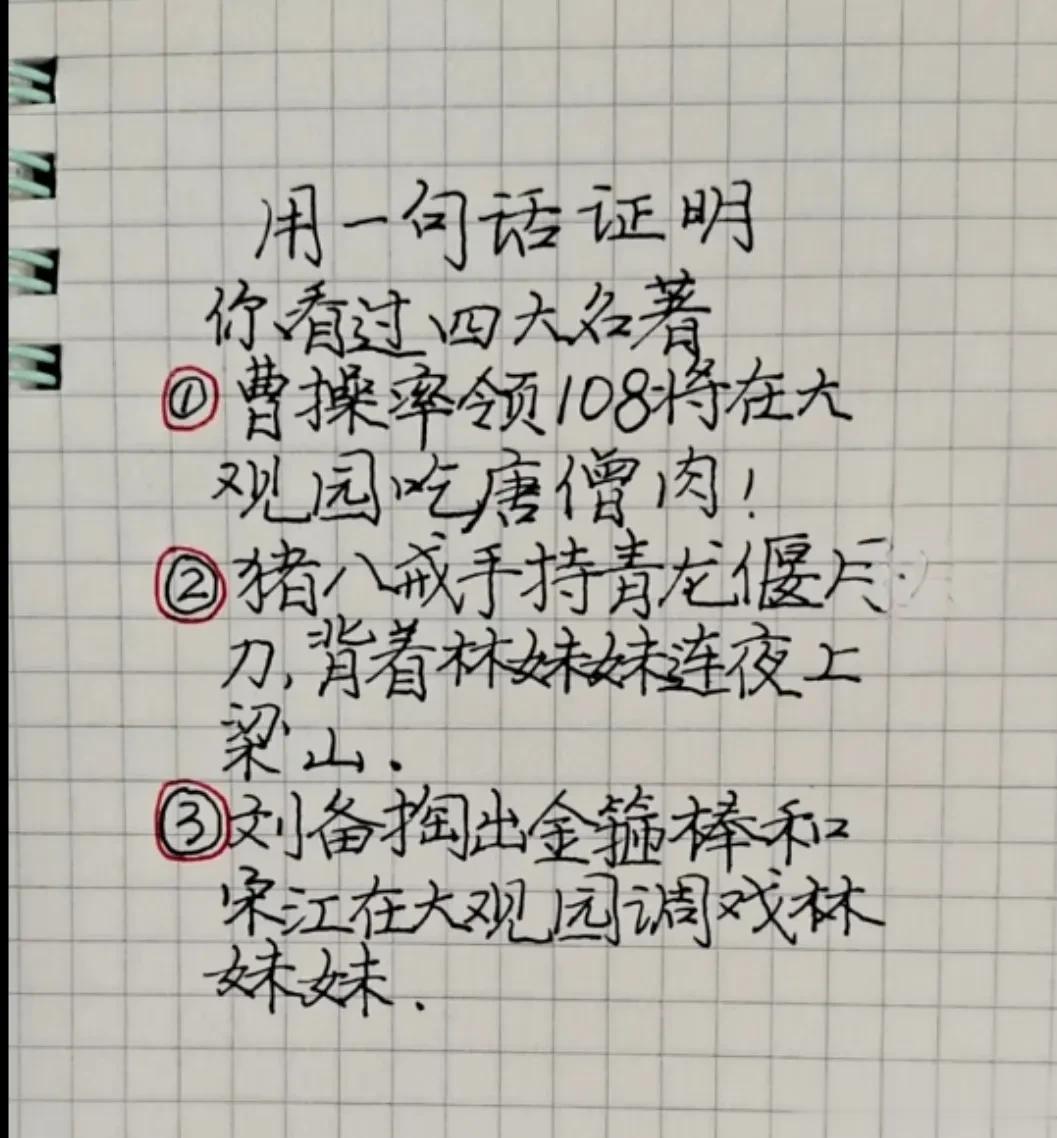 用一句话证明
你看过四大名著
①曹操率领108将在大
观园吃唐僧肉!
②猪八戒手持青龙偃月
刀,背着林妹妹连夜上
梁山.
③刘备掏出金箍棒和
宋江在大观园调戏林
妹妹.